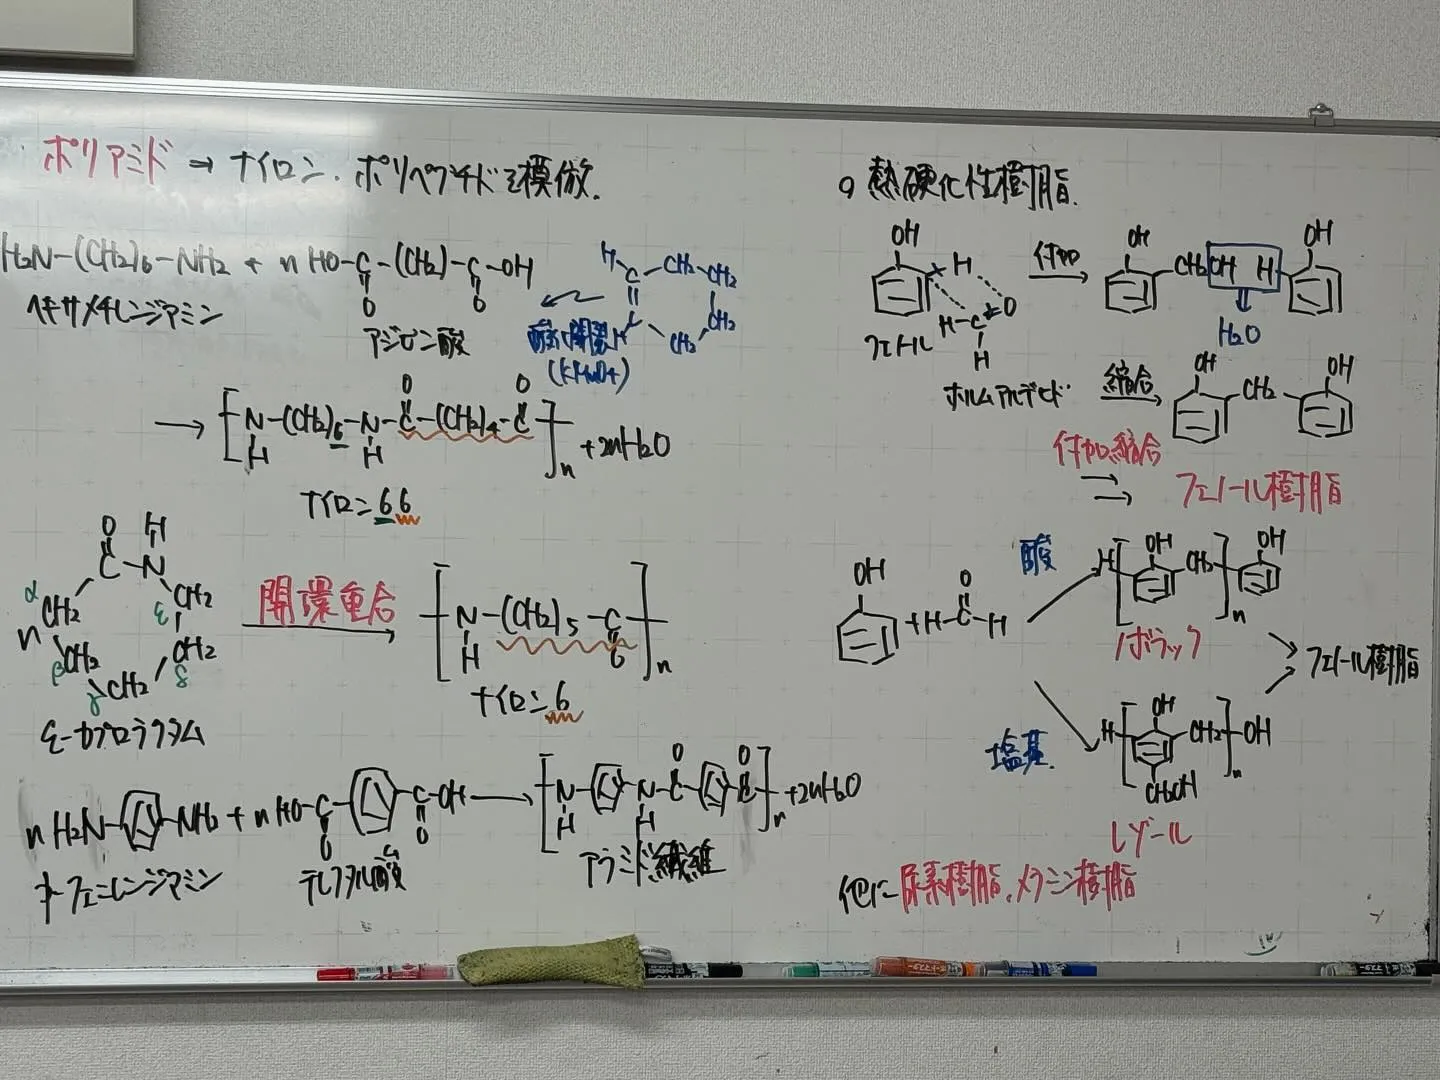 ポリアミド → ナイロン. ポリペプチドを模倣.
H₂N-(CH₂)₆-NH₂ + n HO-C-(CH₂)-C-OH
O O
ヘキサメチレンジアミン
アジピン酸
H C-CH₂-CH₂
CH₂
CH₂
(KMnO₄)
O O
→ [N-(CH₂)₆-N-C-(CH₂)₄-C]n + 2nH₂O
H H
ナイロン66
O H
C-N
α CH₂ ε CH₂
n βCH₂ CH₂ δ
γ CH₂
ε-カプロラクタム
開環重合
[N-(CH₂)₅-C]n
H O
ナイロン6
n H₂N-NH₂ + n HO-C-C-OH → [N-N-C-C]n + 2nH₂O
O O H H O O
フェニレンジアミン
テレフタル酸
アラミド繊維
○ 熱硬化性樹脂.
OH H
H-C O
H
フェノール
ホルムアルデヒド
付加
OH CH₂ OH H OH
H₂O
縮合
OH CH₂ OH
付加縮合
→→ フェノール樹脂
OH O
+ H-C-H
酸
H[OH CH₂]n OH
ノボラック
塩基.
H[OH CH₂]n OH
CH₂OH
レゾール
フェノール樹脂
他に 尿素樹脂、メラミン樹脂